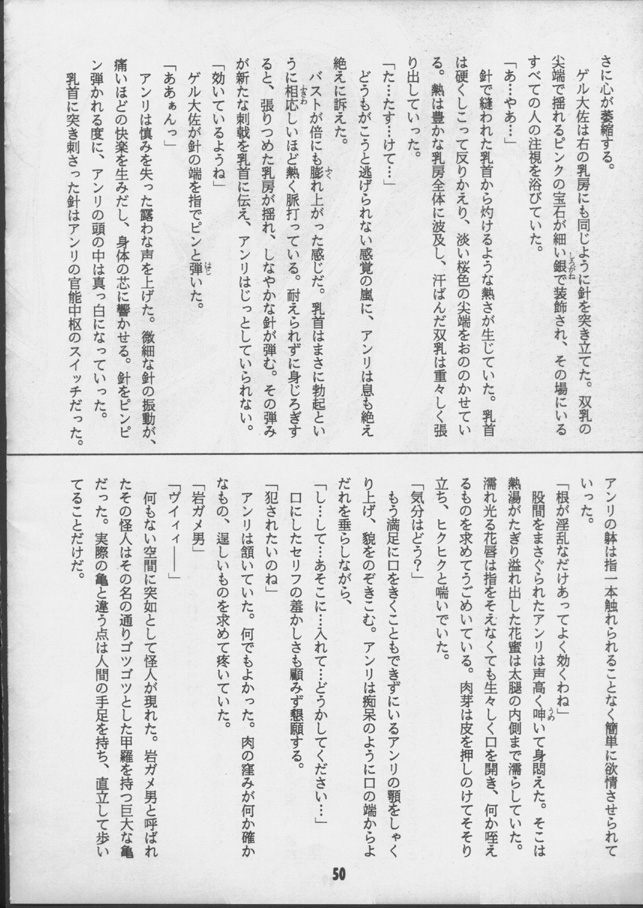 さに心が萎縮する。
ゲル大佐は右の乳房にも同じように針を突き立てた。双乳の
尖端で揺れるピンクの宝石が細い銀で装飾され、その場にいる
しろがね
すべての人の注視を浴びていた。
「あ…やあ…」
針で縫われた乳首から灼けるような熱さが生じていた。乳首
は硬くしこって反りかえり、淡い桜色の尖端をおののかせてい
る。熱は豊かな乳房全体に波及し、汗ばんだ双乳は重々しく張
り出していった。
「た…たす…けて…」
どうもがこうと逃げられない感覚の嵐に、アンリは息も絶え
絶えに訴えた。
バストが倍にも膨れ上がった感じだ。乳首はまさに勃起とい
ふく
うに相応しいほど熱く脈打っている。耐えられずに身じろぎす
ふさわ
ると、張りつめた乳房が揺れ、しなやかな針が弾む。その弾み
が新たな刺戟を乳首に伝え、アンリはじっとしていられない。
「効いているようね」
ゲル大佐が針の端を指でピンと弾いた。
はじ
「ああぁんっ」
アンリは慎みを失った露わな声を上げた。微細な針の振動が、
痛いほどの快楽を生みだし、身体の芯に響かせる。針をピンピ
ン弾かれる度に、アンリの頭の中は真っ白になっていった。
乳首に突き刺さった針はアンリの官能中枢のスイッチだった。
アンリの躰は指一本触れられることなく簡単に欲情させられて
いった。
「根が淫乱なだけあってよく効くわね」
股間をまさぐられたアンリは声高く呻いて身悶えた。そこは
うめ
熱湯がたぎり溢れ出した花蜜は太腿の内側まで濡らしていた。
濡れ光る花唇は指をそえなくても生々しく口を開き、何か咥え
るものを求めてうごめいている。肉芽は皮を押しのけてそそり
立ち、ヒクヒクと喘いでいた。
「気分はどう？」
もう満足に口をきくこともできずにいるアンリの顎をしゃく
り上げ、貌をのぞきこむ。アンリは痴呆のように口の端からよ
だれを垂らしながら、
「し…して…あそこに…入れて…どうかしてください…」
口にしたセリフの羞かしさも顧みず懇願する。
「犯されたいのね」
アンリは頷いていた。何でもよかった。肉の窪みが何か確か
なもの、逞しいものを求めて疼いていた。
「岩ガメ男」
「ヴイィィ――」
何もない空間に突如として怪人が現れた。岩ガメ男と呼ばれ
たその怪人はその名の通りゴツゴツとした甲羅を持つ巨大な亀
だった。実際の亀と違う点は人間の手足を持ち、直立して歩い
てることだけだ。
50